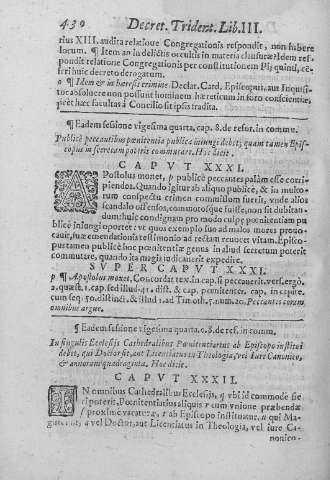 430 Decret. Trident. Lib. III.
rius XIII. audita relatione Congregationis respondit, non habere
locum. ¶ Item an in delictis occultis in materia clausuræ? Idem res-
pondit relatione Congregationis per constitutionem Pij quinti, cē-
seri huic decreto derogatum.
o ¶ Idem & in hæresis crimine. Declar. Card. Episcopus, aut Inquisi-
tor absoluere non possunt hominem hæreticum in foro conscientiæ,
licet hæc facultas à Concilio sit ipsis tradita.
¶ Eadem sessione vigesima quarta, cap. 8. de refor. in commu.
Publicè peccantibus pœnitentia publicè iniungi debet; quam tamen Epis-
copus in secretam poterit commutare. Hoc dicit.
CAPVT XXXI.
APostolus monet, p publicè peccantes palàm esse corri-
piendos. Quando igitur ab aliquo publicè, & in multo-
rum conspectu crimen commissum fuerit, vnde alios
scandalo offensos, commotosque fuisse, non sit dubitan-
dum: huic condignam pro modo culpæ pœnitentiam pu
blicè iniungi oportet: vt quos exemplo suo ad malos mores prouo-
cauit, suæ emendationis testimonio ad rectam reuocet vitam. Episco-
pus tamen publicè hoc pœnitentiæ genus in aliud secretum poterit
commutare, quando ita magis iudicauerit expedire.
SVPER CAPVT XXXI.
p ¶ Apostolus monet, Concordat tex. in cap. si peccauerit, vers. ergò.
2. quæst. 1. cap. sed illud. 45. dist. & cap. pœnitentes. cap. in capite.
cum seq. 50. distinct. & illud 1. ad Timoth. 5. num. 20. Peccantes coram
omnibus argue.
¶ Eadem sessione vigesima quarta. c. 8. de ref. in comm.
In singulis Ecclesijs Cathedralibus Pœnitentiarius ab Episcopo institui
debet, qui Doctor sit, aut Licentiatus in Theologia, vel Iure Canonico,
& annorum quadraginta. Hoc dicit.
CAPVT XXXII.
IN omnibus Cathedralibus Ecclesijs, q vbi id commodè fie
ri poterit, Pœnitentiarius aliquis r cum vnione præbendæ
s proximè vacaturæ, t ab Episcopo instituatur, u qui Ma-
gister sit, vel Doctor, aut Licentiatus in Theologia, vel Iure Ca-
nonico-